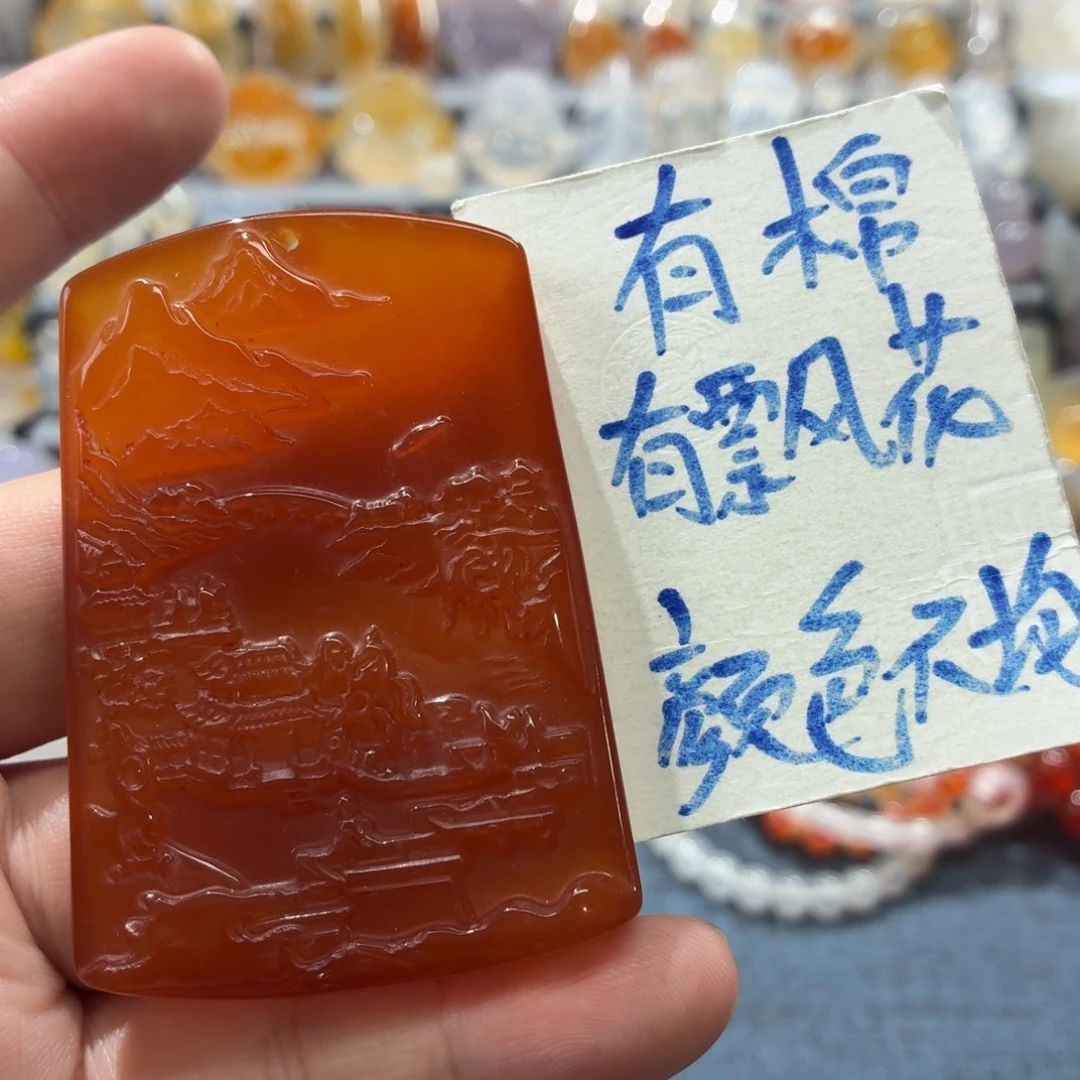 有棉
有飘风花
颜色不均